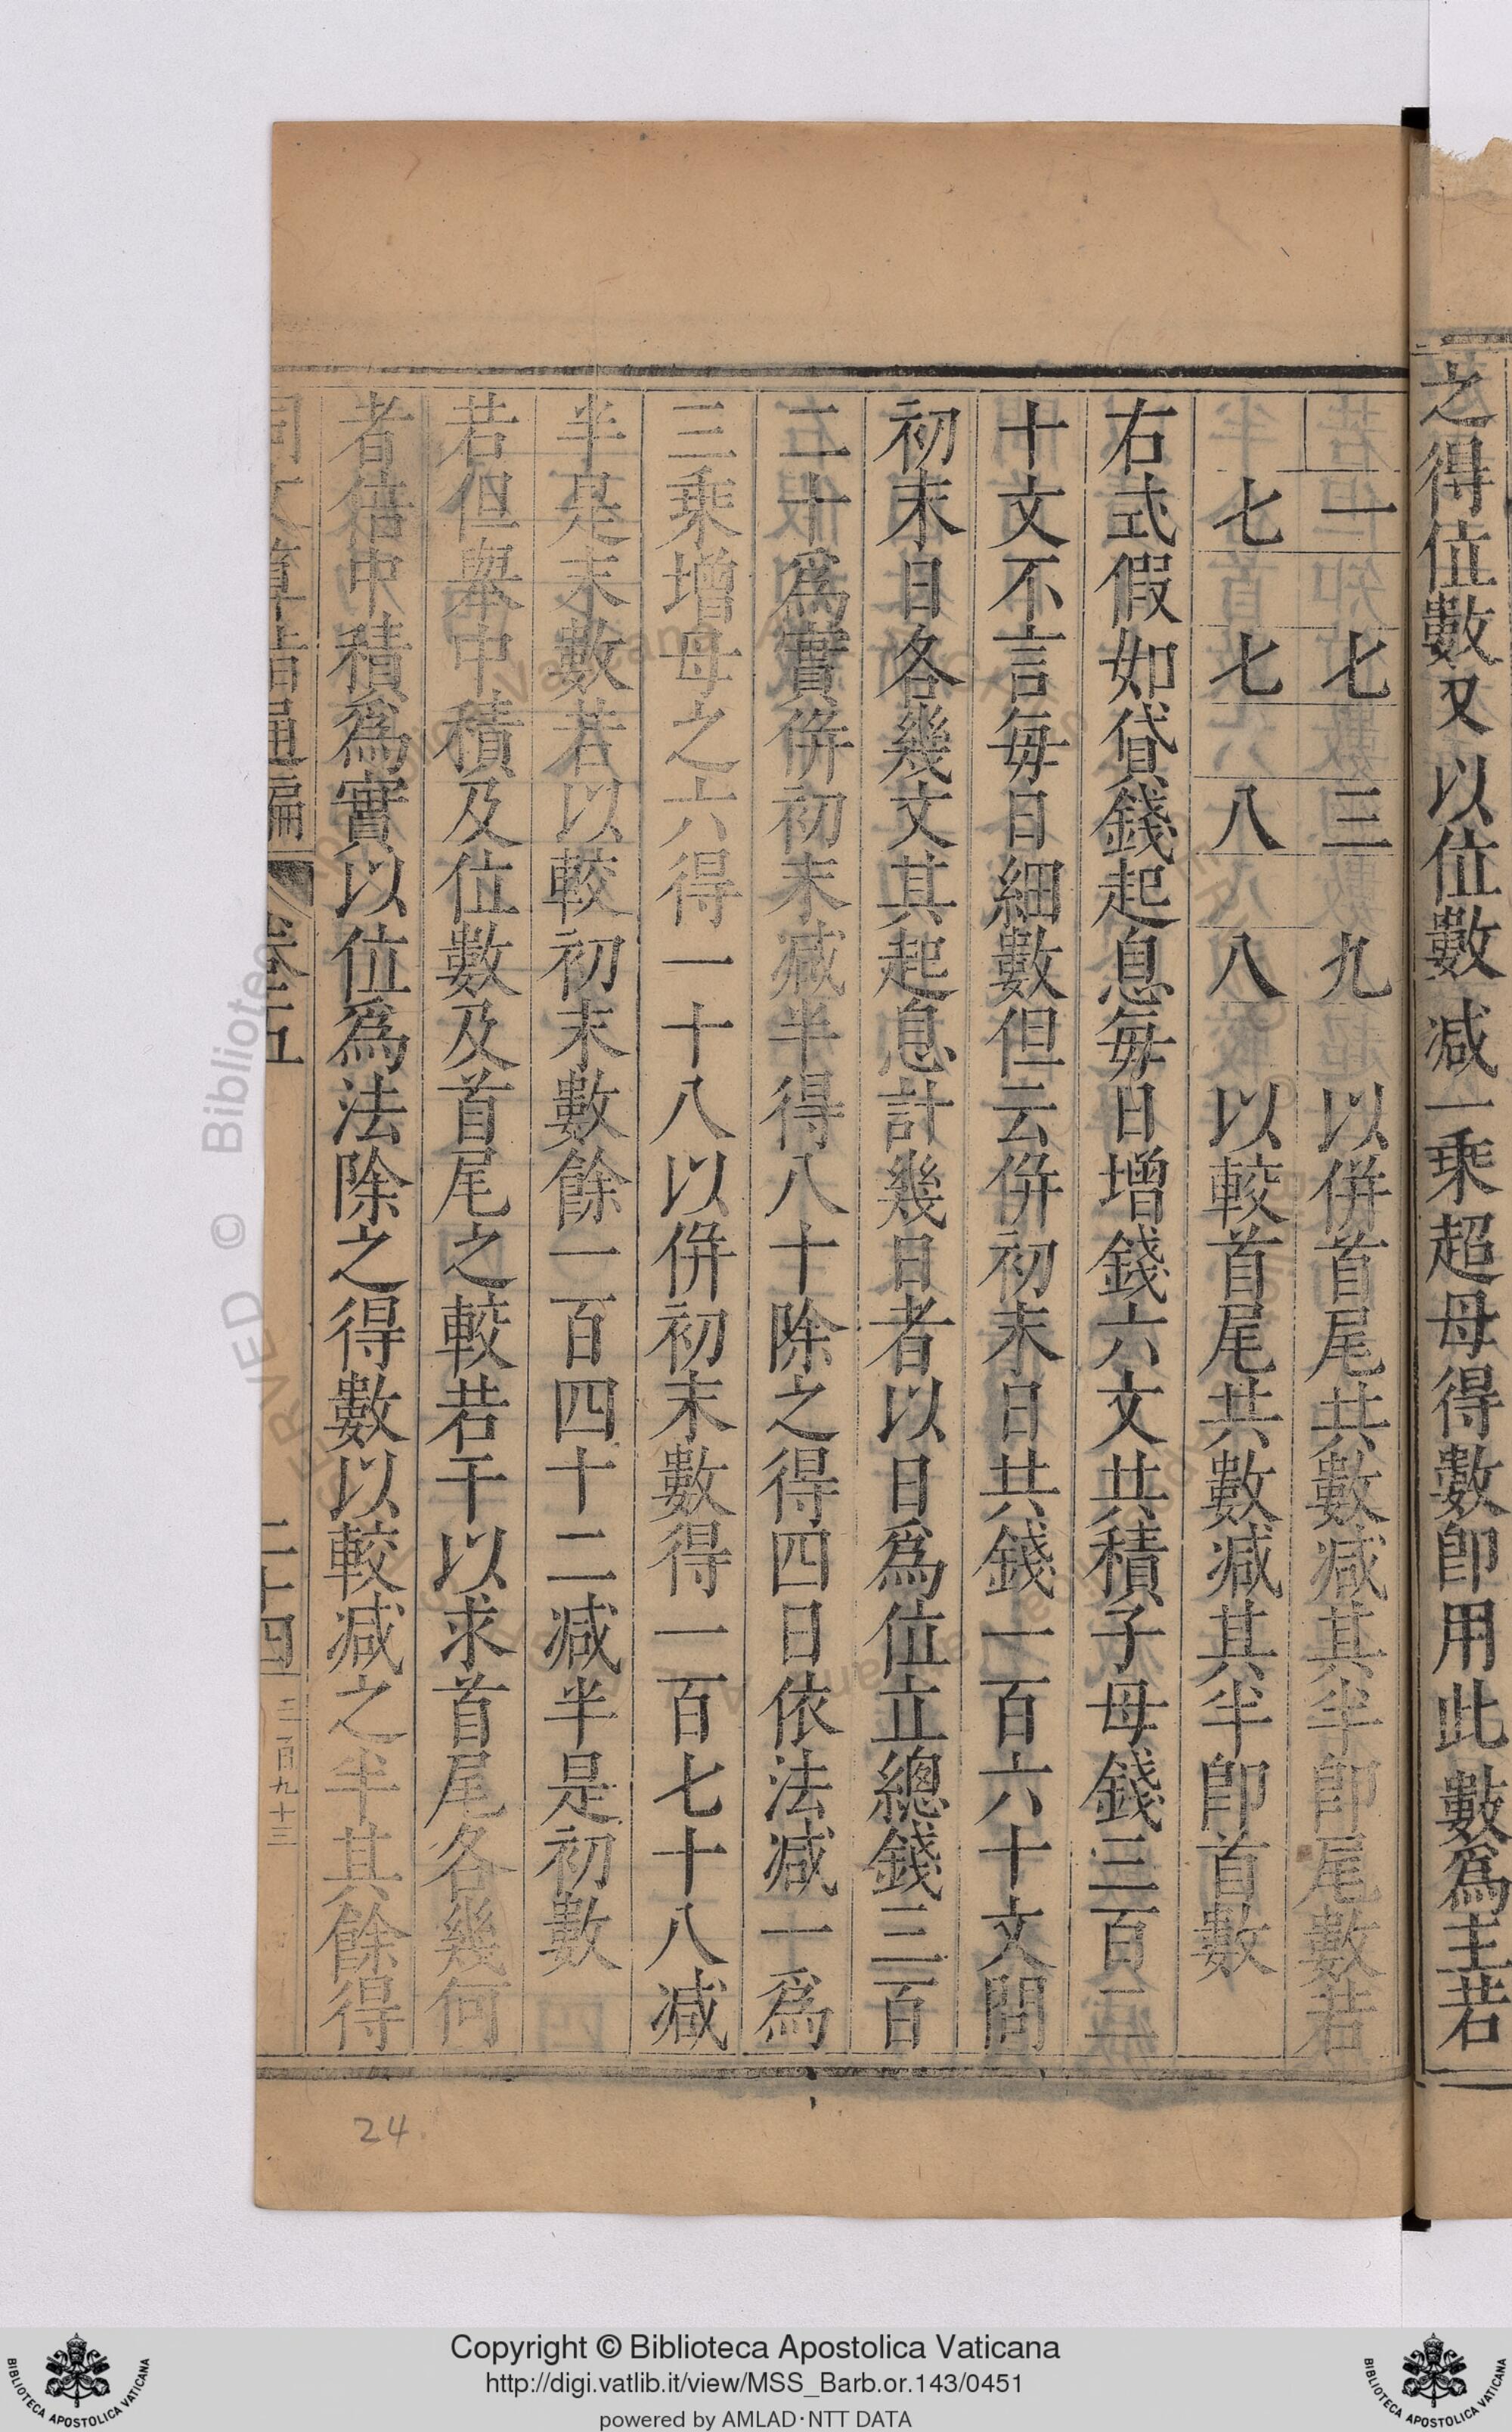 之得位數又以位數減一乘超母得數即用此數為主若
一七三九以併首尾共數減其半即尾數若
七七八八以較首尾共數減其半即首數
右式假如貸錢起息每日增錢六文共積子母錢三百二
十文不言每日細數但云併初末日共錢一百六十文問
初末日各幾文其起息計幾日者以日為位立總錢三百
二十為實併初末減半得八十除之得四日依法減一為
三乘增母之六得一十八以併初末數得一百七十八減
半是末數若以較初末數餘一百四十二減半是初數
若但舉中積及位數及首尾之較若干以求首尾各幾何
者倍中積為實以位為法除之得數以較減之半其餘得
同文算指通編 卷五 二十四 三百九十三
24
Copyright © Biblioteca Apostolica Vaticana
http://digi.vatlib.it/view/MSS_Barb.or.143/0451
powered by AMLAD·NTT DATA
BIBLIOTECA APOSTOLICA VATICANA
BIBLIOTECA APOSTOLICA VATICANA